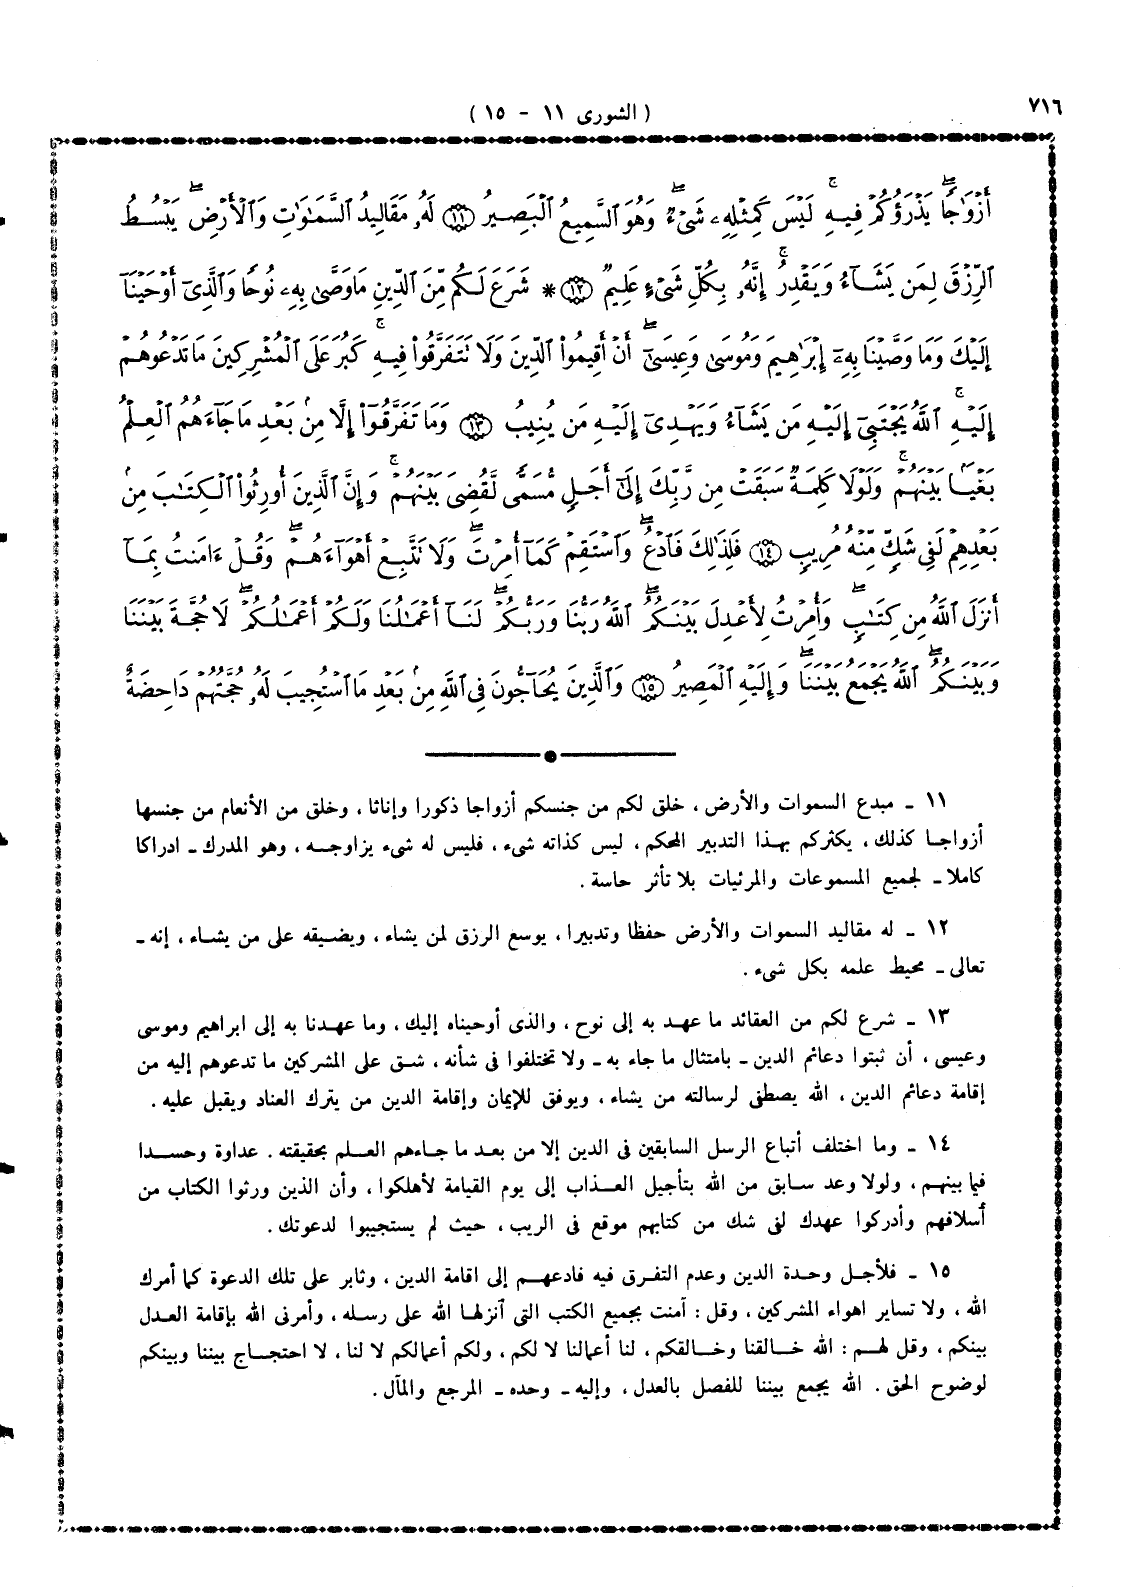 ٧١٦
( الشورى ١١ - ١٥ )
أَزْوَٰجًا يَذْرَؤُكُمْ فِيهِ لَيْسَ كَمِثْلِهِۦ شَىْءٌ وَهُوَ السَّمِيعُ الْبَصِيرُ ⑪ لَهُۥ مَقَالِيدُ السَّمَٰوَٰتِ وَالْأَرْضِ يَبْسُطُ
الرِّزْقَ لِمَن يَشَآءُ وَيَقْدِرُ إِنَّهُۥ بِكُلِّ شَىْءٍ عَلِيمٌ ⑫ * شَرَعَ لَكُم مِّنَ الدِّينِ مَا وَصَّىٰ بِهِۦ نُوحًا وَالَّذِىٓ أَوْحَيْنَآ
إِلَيْكَ وَمَا وَصَّيْنَا بِهِۦٓ إِبْرَٰهِيمَ وَمُوسَىٰ وَعِيسَىٰٓ أَنْ أَقِيمُوا الدِّينَ وَلَا تَتَفَرَّقُوا فِيهِ كَبُرَ عَلَى الْمُشْرِكِينَ مَا تَدْعُوهُمْ
إِلَيْهِ اللَّهُ يَجْتَبِىٓ إِلَيْهِ مَن يَشَآءُ وَيَهْدِىٓ إِلَيْهِ مَن يُنِيبُ ⑬ وَمَا تَفَرَّقُوٓا إِلَّا مِنۢ بَعْدِ مَا جَآءَهُمُ الْعِلْمُ
بَغْيًۢا بَيْنَهُمْ وَلَوْلَا كَلِمَةٌ سَبَقَتْ مِن رَّبِّكَ إِلَىٰٓ أَجَلٍ مُّسَمًّى لَّقُضِىَ بَيْنَهُمْ وَإِنَّ الَّذِينَ أُورِثُوا الْكِتَٰبَ مِنۢ
بَعْدِهِمْ لَفِى شَكٍّ مِّنْهُ مُرِيبٍ ⑭ فَلِذَٰلِكَ فَادْعُ وَاسْتَقِمْ كَمَآ أُمِرْتَ وَلَا تَتَّبِعْ أَهْوَآءَهُمْ وَقُلْ ءَامَنتُ بِمَآ
أَنزَلَ اللَّهُ مِن كِتَٰبٍ وَأُمِرْتُ لِأَعْدِلَ بَيْنَكُمُ اللَّهُ رَبُّنَا وَرَبُّكُمْ لَنَآ أَعْمَٰلُنَا وَلَكُمْ أَعْمَٰلُكُمْ لَا حُجَّةَ بَيْنَنَا
وَبَيْنَكُمُ اللَّهُ يَجْمَعُ بَيْنَنَا وَإِلَيْهِ الْمَصِيرُ ⑮ وَالَّذِينَ يُحَآجُّونَ فِى اللَّهِ مِنۢ بَعْدِ مَا اسْتُجِيبَ لَهُۥ حُجَّتُهُمْ دَاحِضَةٌ
١١ ـ مبدع السموات والأرض ، خلق لكم من جنسكم أزواجا ذكورا وإناثا ، وخلق من الأنعام من جنسها
أزواجا كذلك ، يكثركم بهذا التدبير المحكم ، ليس كذاته شىء ، فليس له شىء يزاوجه ، وهو المدرك ـ ادراكا
كاملا ـ لجميع المسموعات والمرئيات بلا تأثر حاسة .
١٢ ـ له مقاليد السموات والأرض حفظا وتدبيرا ، يوسع الرزق لمن يشاء ، ويضيقه على من يشاء ، إنه ـ
تعالى ـ محيط علمه بكل شىء .
١٣ ـ شرع لكم من العقائد ما عهد به إلى نوح ، والذى أوحيناه إليك ، وما عهدنا به إلى ابراهيم وموسى
وعيسى ، أن ثبتوا دعائم الدين ـ بامتثال ما جاء به ـ ولا تختلفوا فى شأنه ، شق على المشركين ما تدعوهم إليه من
إقامة دعائم الدين ، الله يصطفى لرسالته من يشاء ، ويوفق للإيمان وإقامة الدين من يترك العناد ويقبل عليه .
١٤ ـ وما اختلف أتباع الرسل السابقين فى الدين إلا من بعد ما جاءهم العلم بحقيقته . عداوة وحسدا
فيما بينهم ، ولولا وعد سابق من الله بتأجيل العذاب إلى يوم القيامة لأهلكوا ، وأن الذين ورثوا الكتاب من
أسلافهم وأدركوا عهدك لفى شك من كتابهم موقع فى الريب ، حيث لم يستجيبوا لدعوتك .
١٥ ـ فلأجل وحدة الدين وعدم التفرق فيه فادعهم إلى اقامة الدين ، وثابر على تلك الدعوة كما أمرك
الله ، ولا تساير اهواء المشركين ، وقل : آمنت بجميع الكتب التى أنزلها الله على رسله ، وأمرنى الله بإقامة العدل
بينكم ، وقل لهم : الله خالقنا وخالقكم ، لنا أعمالنا لا لكم ، ولكم أعمالكم لا لنا ، لا احتجاج بيننا وبينكم
لوضوح الحق . الله يجمع بيننا للفصل بالعدل ، وإليه ـ وحده ـ المرجع والمآل .